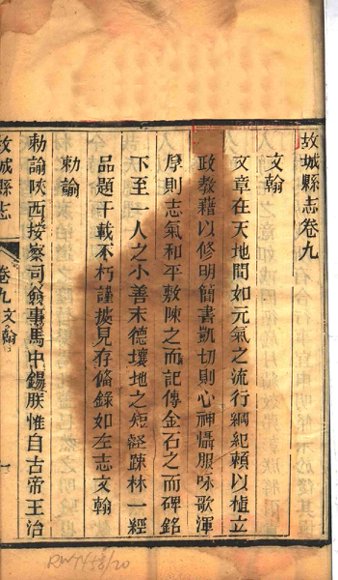 故城縣志卷九
文翰
文章在天地間如元氣之流行綱紀賴以植立
政教藉以修明簡書凱切則心神懾服咏歌渾
厚則志氣和平敷陳之而記傳金石之而碑銘
下至一人之小善末德壤地之短疎林一經
品題千載不朽謹掇見存備錄如左志文翰
勅諭
勅諭陜西按察司僉事馬中錫朕惟自古帝王治
故城縣志
卷九 文翰
一
RW7458/20